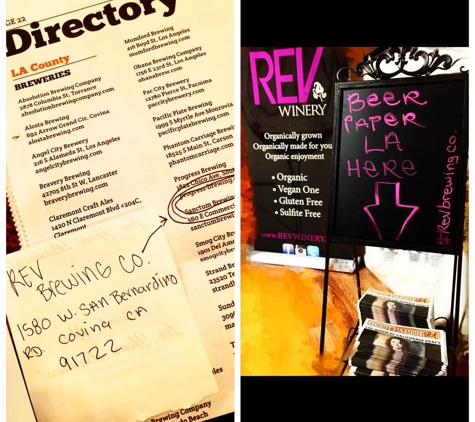 GE 22
Directory
LA County
BREWERIES
Absolution Brewing Company
2878 Columbia St, Torrance
absolutionbrewingcompany.com
Alosta Brewing
692 Arrow Grand Cir, Covina
alostabrew.com
Angel City Brewery
216 S Alameda St, Los Angeles
angelcitybrewery.com
Bravery Brewing
42705 8th St W, Lancaster
braverybrewing.com
Claremont Craft Ales
1420 N Claremont Blvd #204C,
Claremont
Mumford Brewing
416 Boyd St, Los Angeles
mumfordbrewing.com
Ohana Brewing Company
1756 E 23rd St, Los Angeles
ohanabrew.com
Pac City Brewery
12760 Pierce St, Pacoima
paccitybrewery.com
Pacific Plate Brewing
1999 S Myrtle Ave Monrovia
pacificplatebrewing.com
Phantom Carriage Brewery
18525 S Main St, Carson
phantomcarriage.com
Progress Brewing
1822 Chico Ave, South
progress-brewing.
Sanctum Brewing
560 E Commercial
sanctumbrewing
Smog City Brewing
1901 Del Amo
smogcity
Strand Br
23520 Te
strandbre
les
Brewing Company
do Beach
REV
Brewing Co.
1580 W. San Bernardino
RD. Covina CA
91722
REV
WINERY
Organically grown
Organically made for you
Organic enjoyment
• Organic
• Vegan One
• Gluten Free
• Sulfite Free
www.REVWINERY.
BEER
PAPER
LA
HERE
#Revbrewingco.